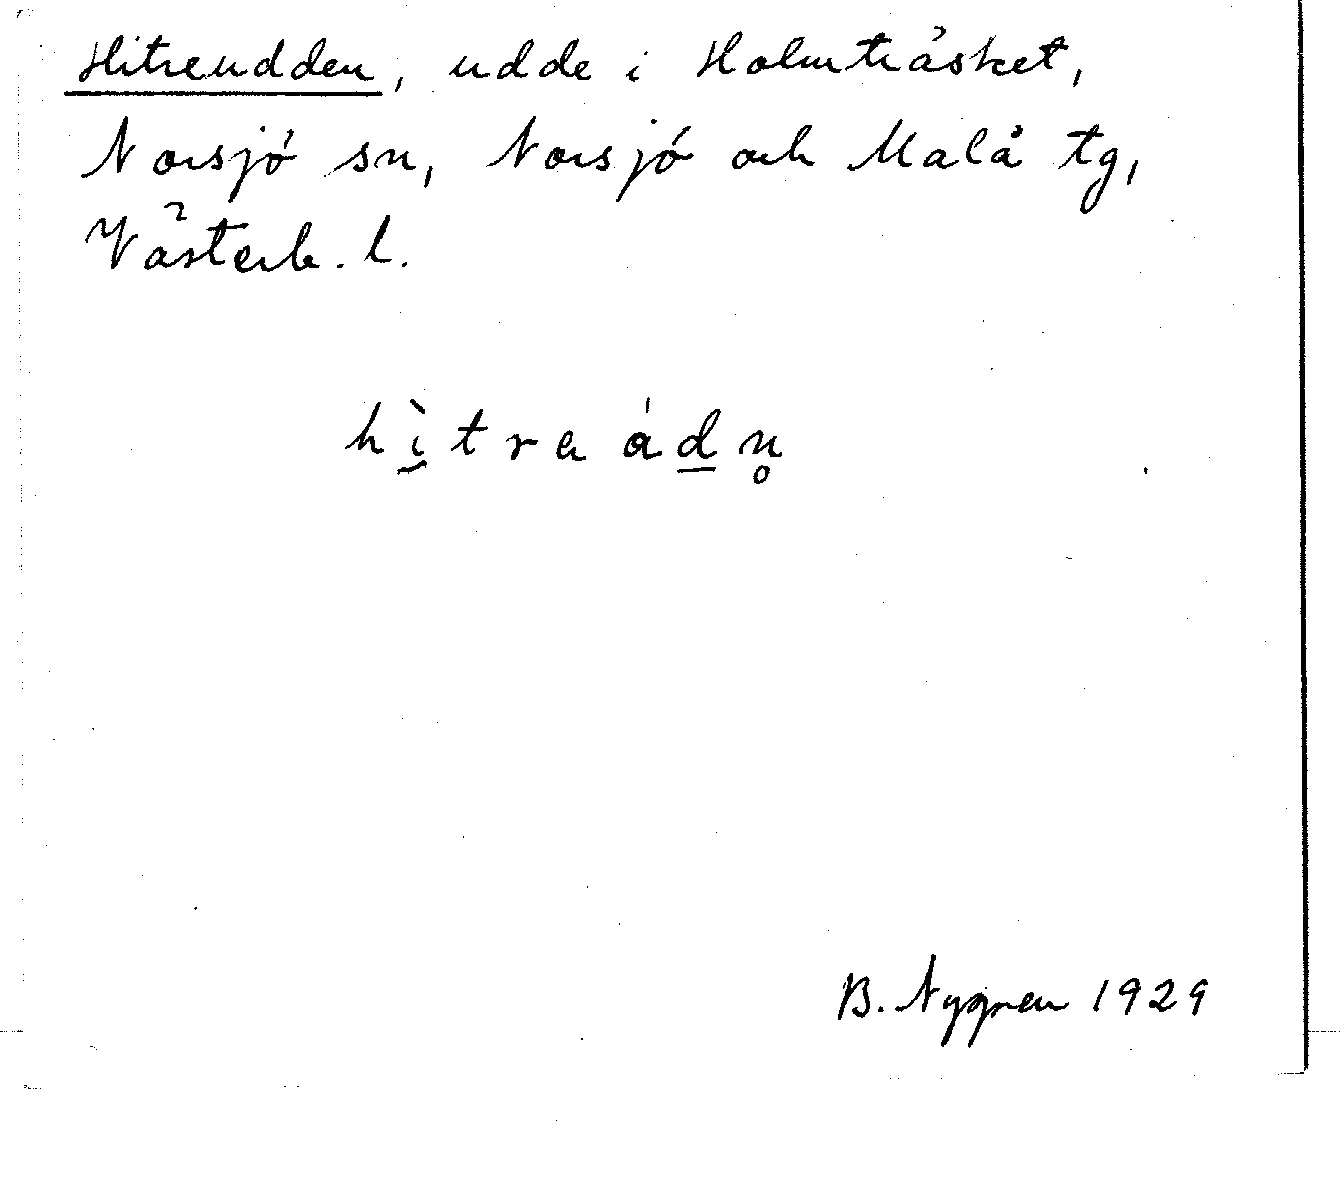 Hitreudden, udde i Holmträsket,
Norsjö sn, Norsjö och Malå tg,
Västerb. l.
hì̱trea ád̲n̥
B. Nygren 1929